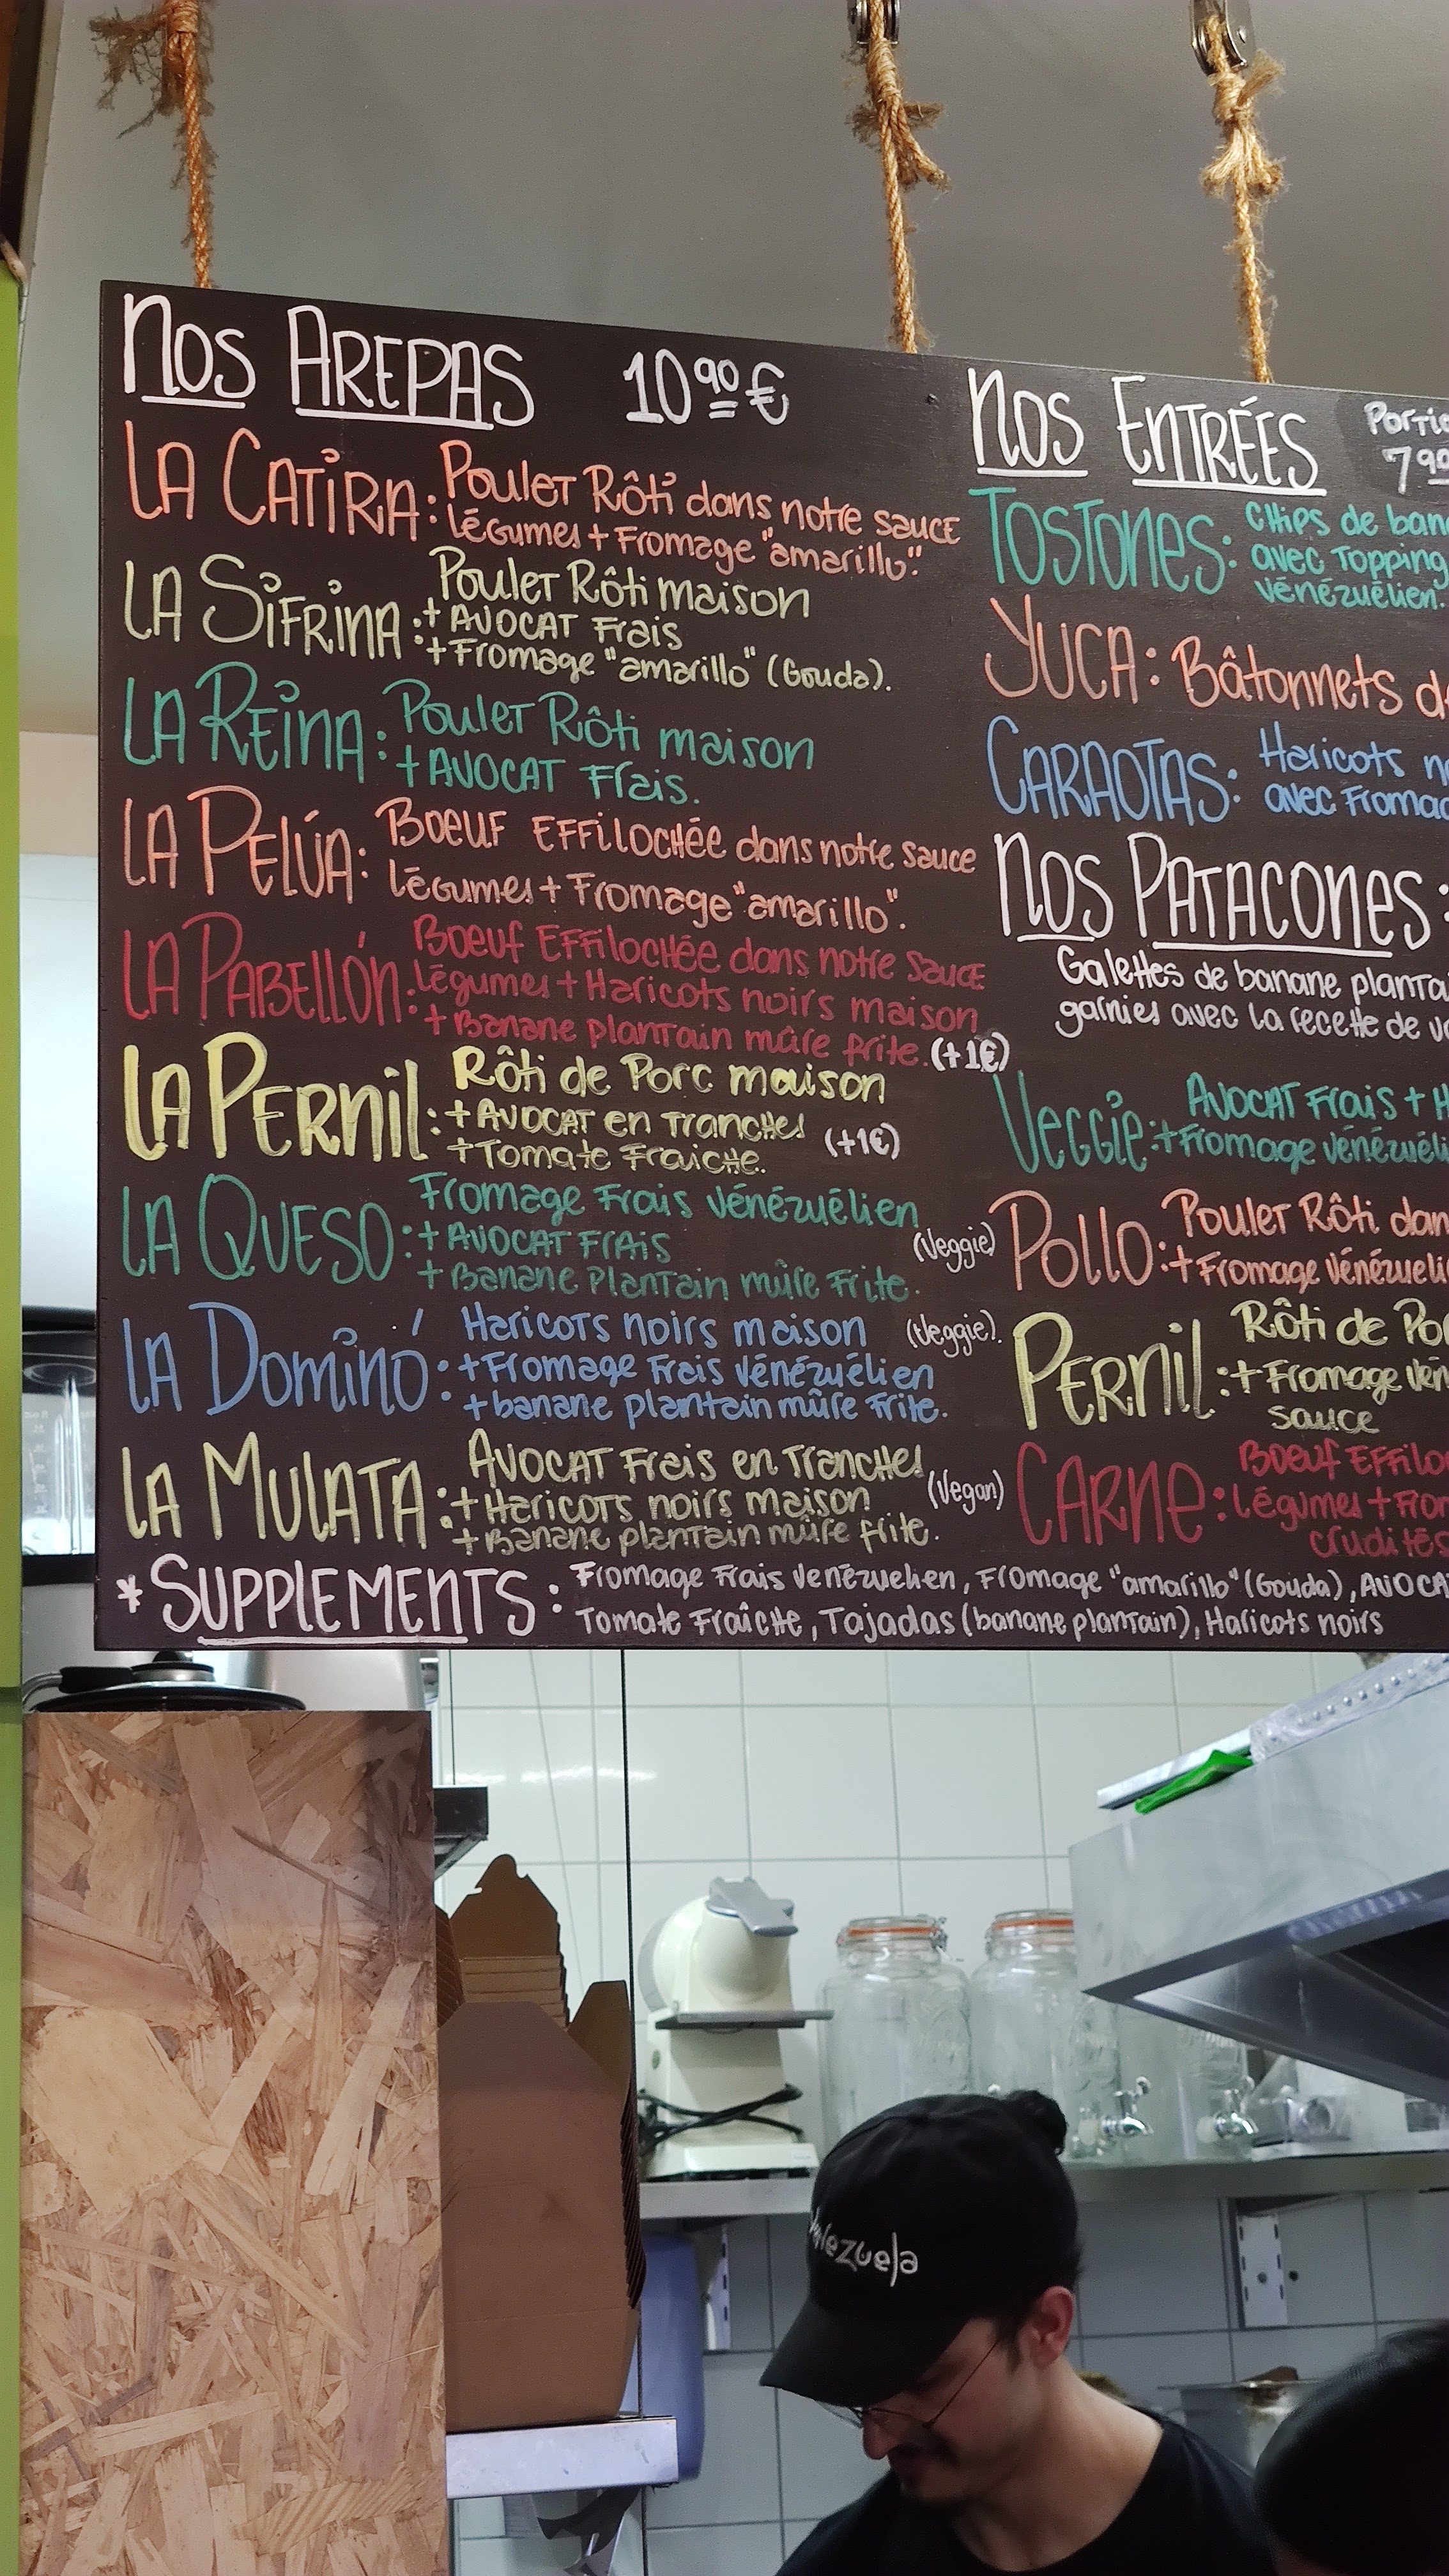 Nos AREPAS 10⁹⁰€
LA CATIRA: Poulet Rôti dans notre sauce
légumes + Fromage "amarillo".
LA SIFRINA: Poulet Rôti maison
+ AVOCAT Frais
+ Fromage "amarillo" (Gouda).
LA REINA: Poulet Rôti maison
+ AVOCAT Frais.
LA PELÚA: Boeuf Effilochée dans notre sauce
légumes + Fromage "amarillo".
LA PABELLÓN: Boeuf Effilochée dans notre sauce
légumes + Haricots noirs maison
+ Banane plantain mûre frite. (+1€)
LA PERNIL: Rôti de Porc maison
+ AVOCAT en Tranches
+ Tomate Fraiche. (+1€)
LA QUESO: Fromage Frais Vénézuélien
+ AVOCAT FRAIS (Veggie)
+ Banane Plantain mûre Frite.
LA DOMINÓ: Haricots noirs maison (Veggie).
+ Fromage Frais Vénézuélien
+ banane plantain mûre Frite.
LA MULATA: AVOCAT Frais en Tranches
+ Haricots noirs maison (Vegan)
+ Banane plantain mûre frite.
Nos ENTRÉES
TOSTONES: Chips de
avec Topping
vénézuélien.
YUCA: Bâtonnets
CARAOTAS: Haricots
avec
Nos PATACONES:
Galettes de banane
garnies avec la recette de
Veggie: AVOCAT Frais +
+ Fromage
POLLO: Poulet Rôti
+ Fromage
PERNIL: Rôti de
+ Fromage
sauce
CARNE: Boeuf
légumes +
crudités
* SUPPLEMENTS: Fromage Frais Venezuelien, Fromage "amarillo" (Gouda),
Tomate Fraîche, Tajadas (banane plantain), Haricots noirs